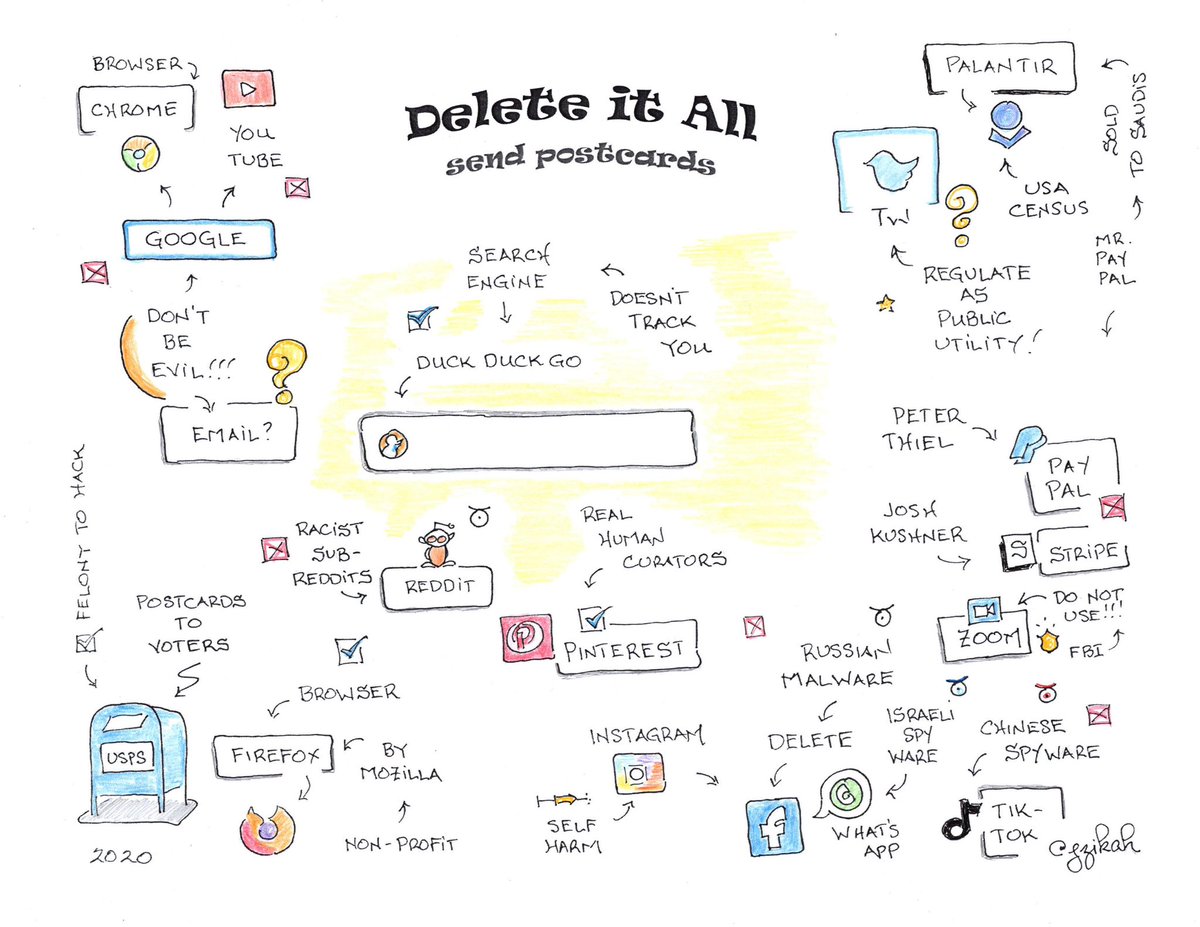 Delete it All
send postcards
BROWSER
CHROME
YOU
TUBE
GOOGLE
DON'T
BE
EVIL!!!
EMAIL?
SEARCH
ENGINE
DOESN'T
TRACK
YOU
DUCK DUCK GO
PALANTIR
SOLD
TO SAUDIS
USA
CENSUS
TW
REGULATE
AS
PUBLIC
UTILITY!
MR.
PAY
PAL
PETER
THIEL
PAY
PAL
JOSH
KUSHNER
S
STRIPE
DO NOT
USE!!!
ZOOM
FBI
FELONY TO HACK
POSTCARDS
TO
VOTERS
USPS
2020
RACIST
SUB-
REDDITS
REDDIT
REAL
HUMAN
CURATORS
PINTEREST
BROWSER
FIREFOX
BY
MOZILLA
NON-PROFIT
INSTAGRAM
SELF
HARM
RUSSIAN
MALWARE
DELETE
f
ISRAELI
SPY
WARE
WHAT'S
APP
CHINESE
SPYWARE
TIK-
TOK
@gzikah